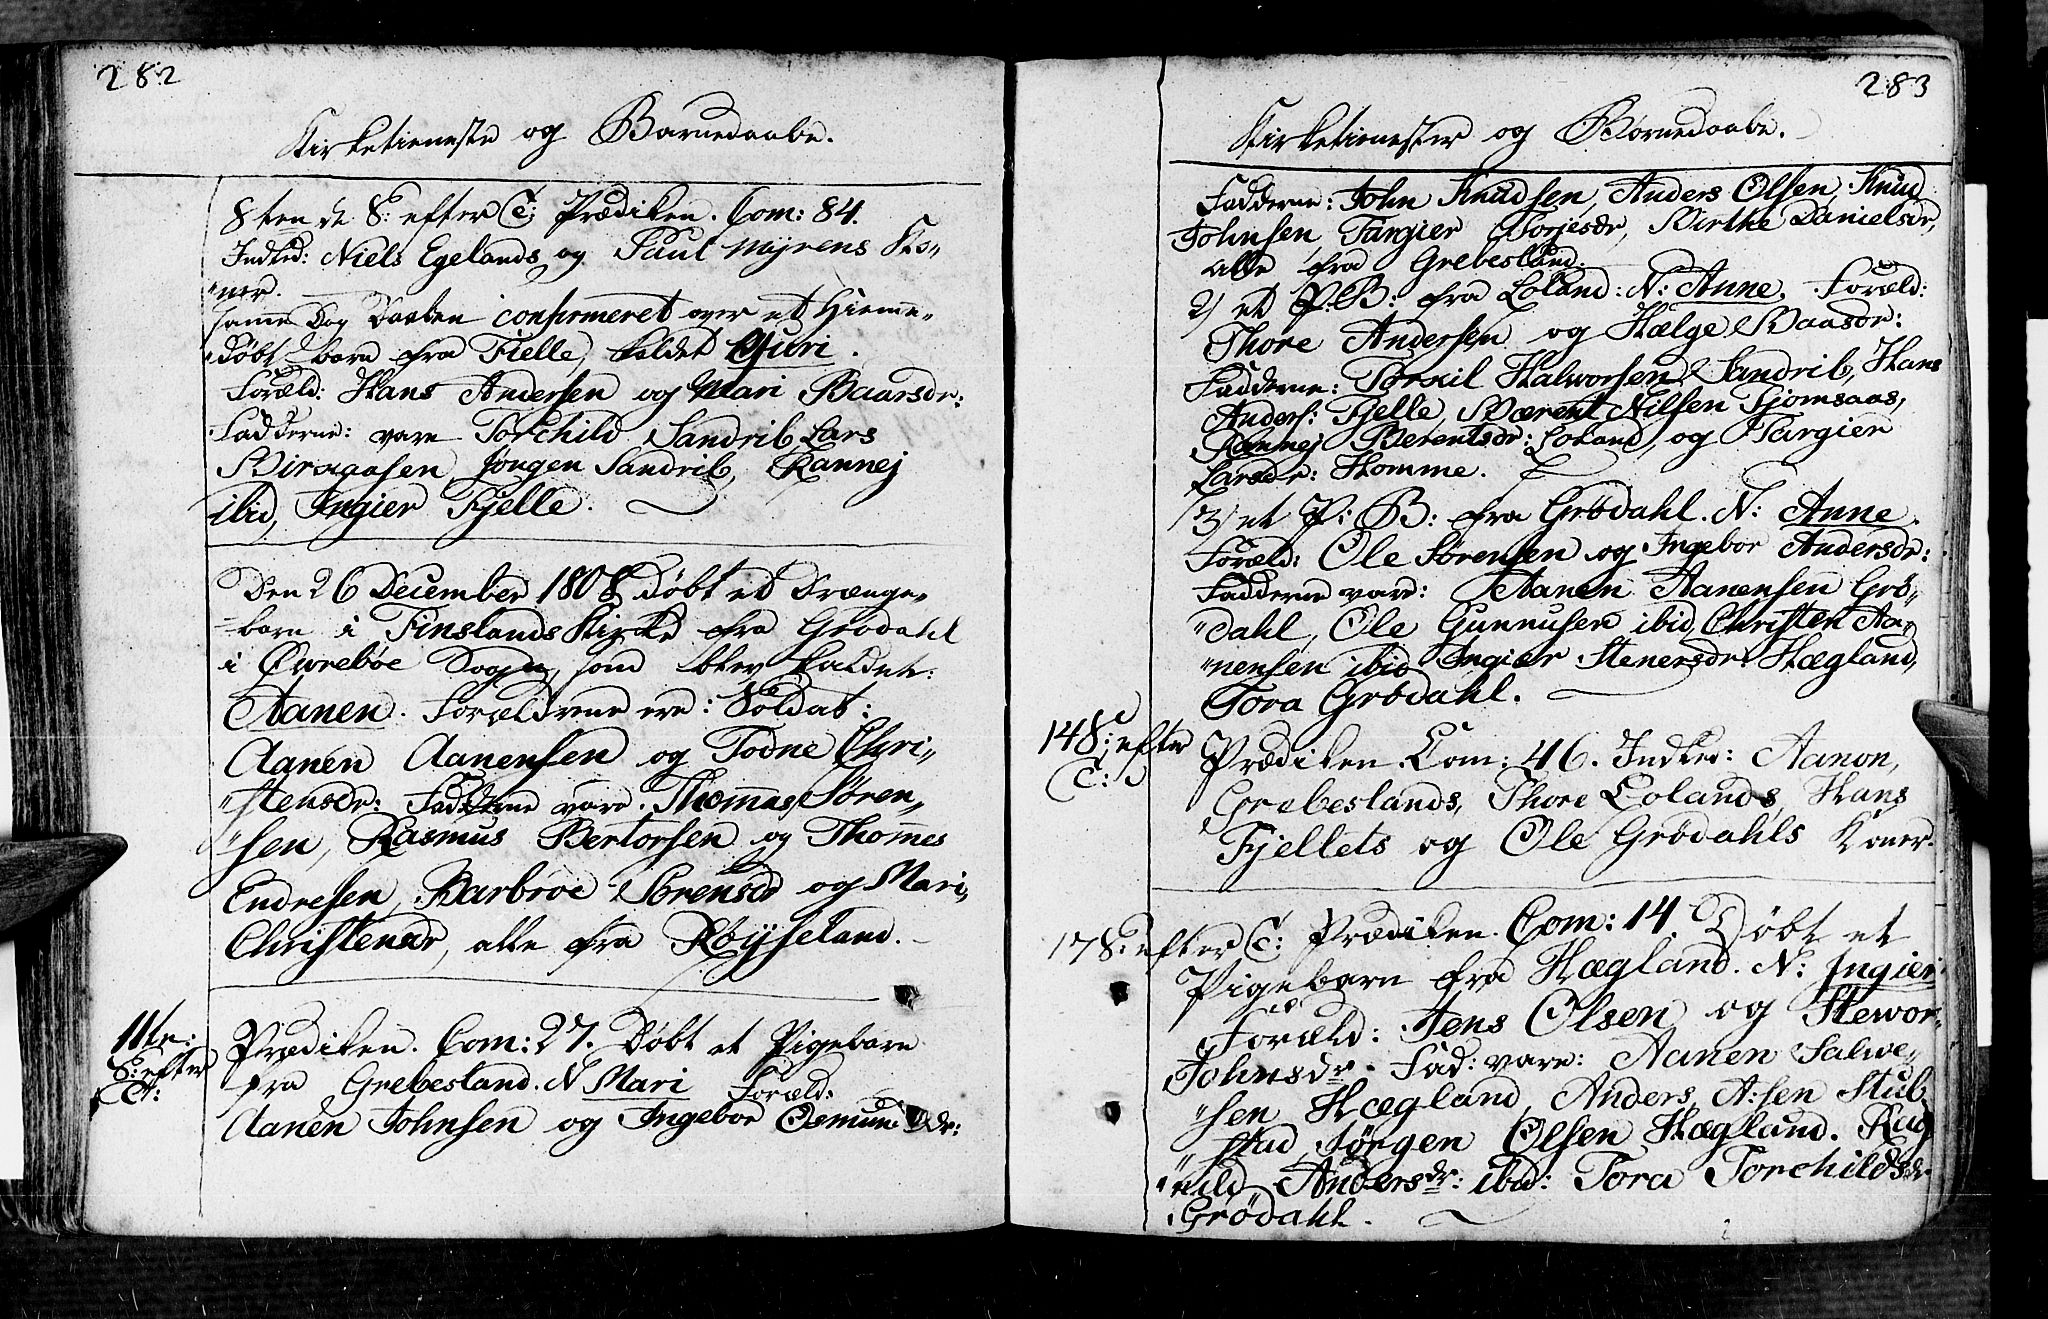 282
Kirketieneste og Barnedaabe.
8ten de S: efter T: Prædiken. Com: 84.
Indled: Niels Egelands og Paul Myrens Ko-
"ner.
samme Dag Daaben confirmeret over et Hieme-
"døbt barn fra Fielle, kaldet Guri.
Foræld: Hans Andersen og Mari Baarsdr:
Fadderne: vare Torchild Sandrib, Lars
Birkaasen Jørgen Sandrib, Rannej
ibid, Ingier Fjelle.
Den 26 December 1808 Døbt et Drænge-
=barn i Finslands Kirke fra Grødahl
i Øvrebøe Sogn, som blev kaldet:
Aanen. Forældrene ere: Soldat:
Aanen Aanensen og Todne Chri-
"stensdr: Fadderne vare. Thommas Søren-
"sen, Rasmus Bertorsen og Thommes
Endresen, Barbroe Sørensd og Mari
Christensdr, alle fra Røyseland.
11te:
S: efter
T:
Prædiken. Com: 27. Døbt et Pigebarn
fra Grebestand. N Mari Foræld:
Aanen Johnsen og Ingebor Osmundsdr:
283
Kirketienester og Børnedaabe.
Fadderne: John Knudsen, Anders Olsen, Knud
Johnsen, Targier Torjesdr, Birthe Danielsdr,
alle fra Grebesland.
2) et P: B: fra Loland: N: Anne. Foræld:
Thore Andersen og Helge Baasdr:
Fadderne: Torkil Halworsen Sandrib, Hans
Anders: Fjelle, Bærent Nilsen Tjomsaas,
Rannej Berentsdr: Loland, og Targier
Larsdr: Homme.
3) et P: B: fra Grødahl. N: Anne.
Foræld: Ole Sørensen og Ingebor Andersdr:
Fadderne vare: Aanen Aanensen Grø-
"dahl, Ole Gunnusen ibid, Christen Aa-
"nensen ibid Ingier Stenersdr Hægland,
Tora Grødahl.
14 S: efter
T:
Prædiken. Com: 46. Indled: Aanon,
Grebeslands, Thore Lolands, Hans
Fjellets og Ole Grødahls Koner.
17 S: efter T: Prædiken. Com: 14. Døbt et
Pigebarn fra Hægland. N: Ingier
Foræld: Jens Olsen og Stewor-
Johnsdr. Fad: vare: Aanen Salwe-
"sen Hægland, Anders A:sen Stub
"stad, Jørgen Olsen Hægland. Rag
"nild Andersdr: ibid: Tora Torchildsdr
Grødahl.